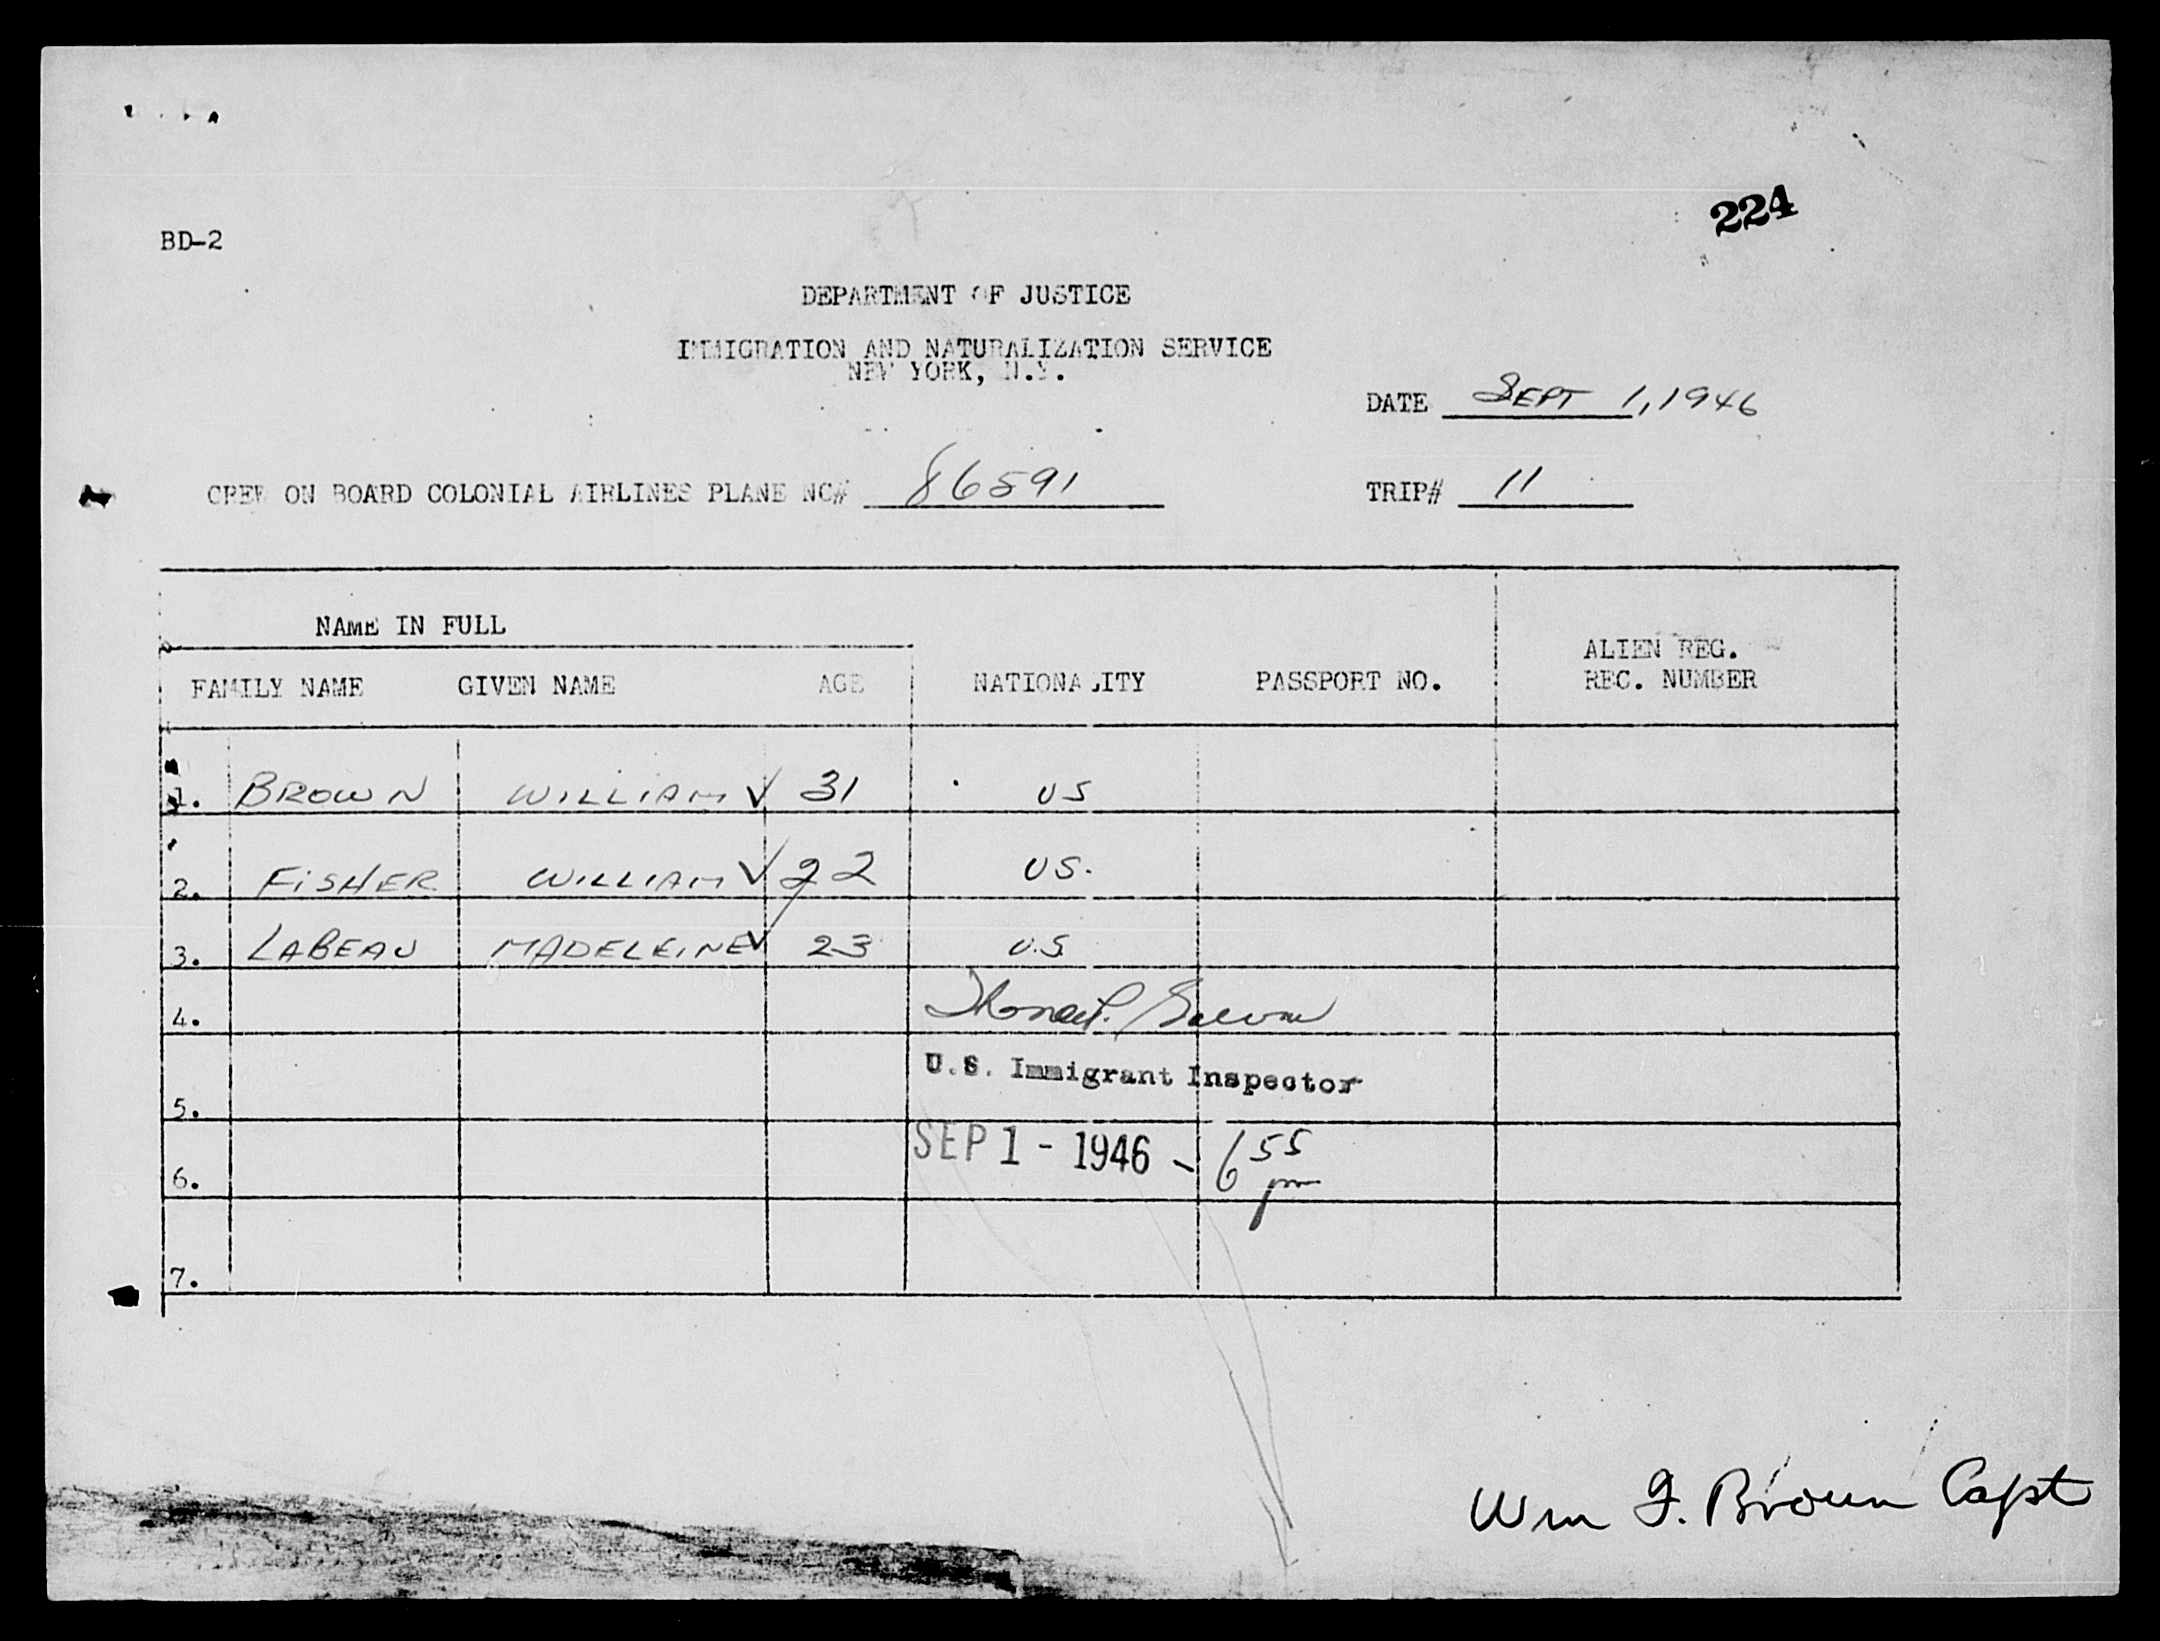 224
BD-2
DEPARTMENT OF JUSTICE
IMMIGRATION AND NATURALIZATION SERVICE
NEW YORK, N.Y.
DATE SEPT 1, 1946
CREW ON BOARD COLONIAL AIRLINES PLANE NC# 86591 TRIP# 11
NAME IN FULL
ALIEN REG.
FAMILY NAME GIVEN NAME AGE NATIONALITY PASSPORT NO. REC. NUMBER
1. BROWN WILLIAM ✓ 31 US
2. FISHER WILLIAM ✓ 22 US.
3. LABEAU MADELEINE ✓ 23 U.S
4.
U.S. Immigrant Inspector
5.
SEP 1 - 1946 - 6 55 pm
6.
7.
Wm F. Brown Capt